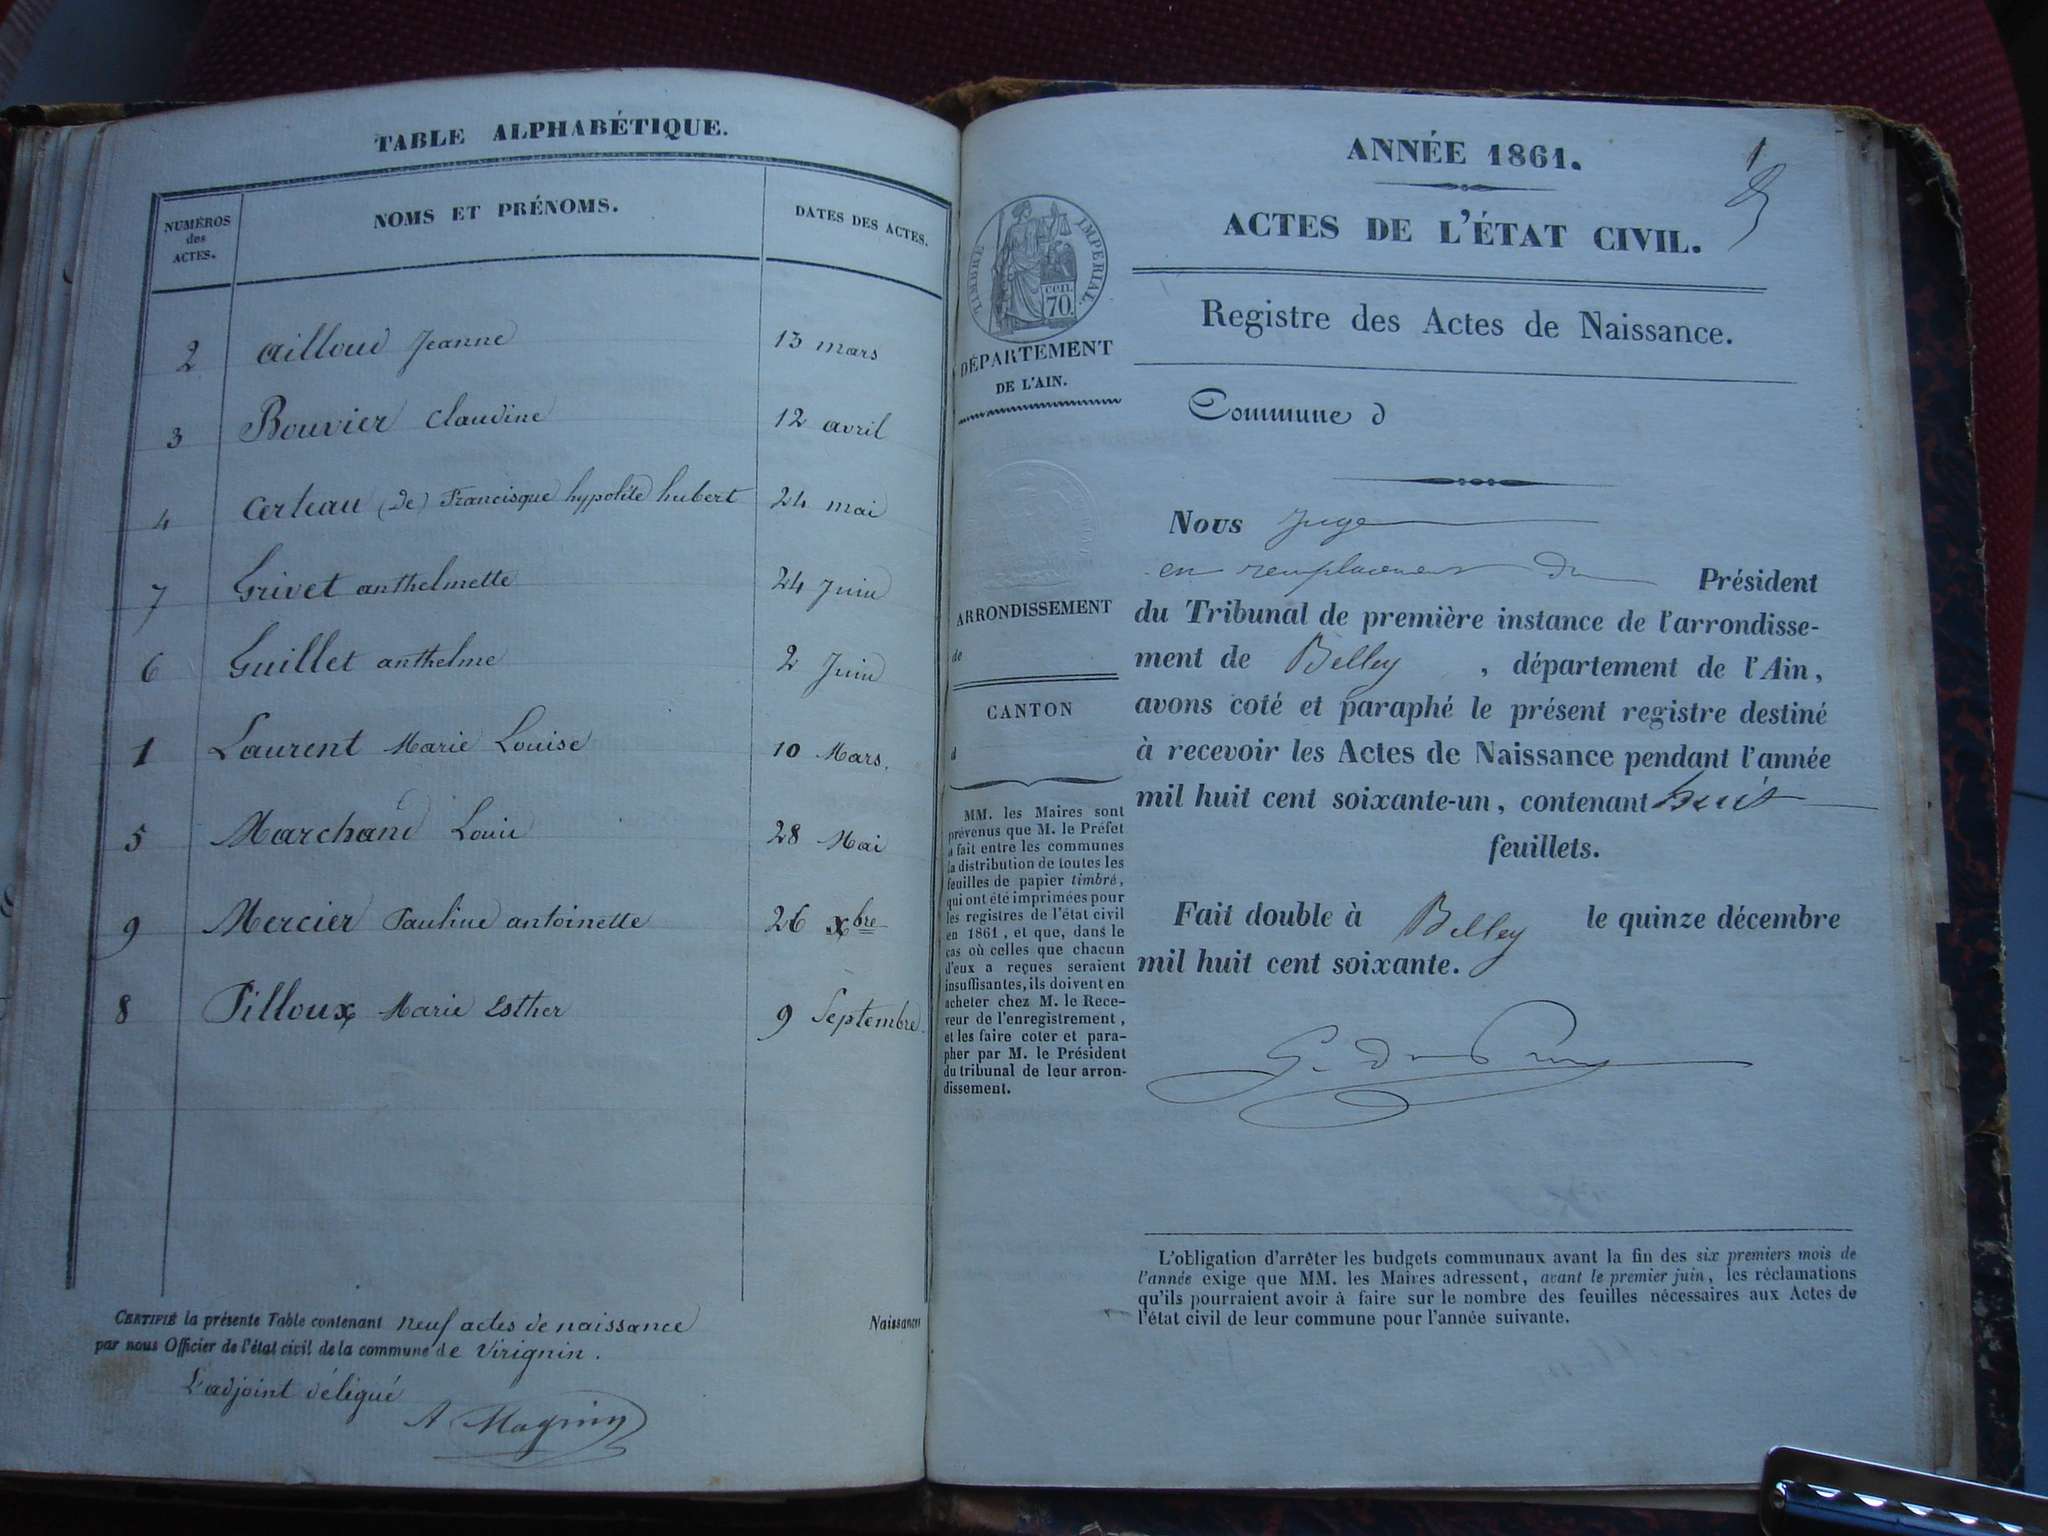 TABLE ALPHABÉTIQUE.
NUMÉROS des ACTES. NOMS ET PRÉNOMS. DATES DES ACTES.
2 Ailloud Jeanne 13 mars
3 Bouvier Claudine 12 avril
4 Certeau (de) Francisque hypolite hubert 24 mai
7 Grivet anthelmette 24 Juin
6 Guillet anthelme 2 Juin
1 Laurent Marie Louise 10 Mars.
5 Marchand Louis 28 Mai
9 Mercier Pauline antoinette 26 Xbre
8 Pilloux Marie Esther 9 Septembre.
CERTIFIÉ la présente Table contenant neuf actes de naissance Naissances
par nous Officier de l'état civil de la commune de Virignin.
L'adjoint délégué
A Magnin
1
ANNÉE 1861.
ACTES DE L'ÉTAT CIVIL.
TIMBRE IMPÉRIAL.
cen.
70.
Registre des Actes de Naissance.
DÉPARTEMENT
DE L'AIN.
Commune d
ARRONDISSEMENT
de
CANTON
d
MM. les Maires sont
prévenus que M. le Préfet
a fait entre les communes
la distribution de toutes les
feuilles de papier timbré,
qui ont été imprimées pour
les registres de l'état civil
en 1861, et que, dans le
cas où celles que chacun
d'eux a reçues seraient
insuffisantes, ils doivent en
acheter chez M. le Rece-
veur de l'enregistrement,
et les faire coter et para-
pher par M. le Président
du tribunal de leur arron-
dissement.
Nous Juge
en remplacement du Président
du Tribunal de première instance de l'arrondisse-
ment de Belley, département de l'Ain,
avons coté et paraphé le présent registre destiné
à recevoir les Actes de Naissance pendant l'année
mil huit cent soixante-un, contenant huit
feuillets.
Fait double à Belley le quinze décembre
mil huit cent soixante.
L'obligation d'arrêter les budgets communaux avant la fin des six premiers mois de
l'année exige que MM. les Maires adressent, avant le premier juin, les réclamations
qu'ils pourraient avoir à faire sur le nombre des feuilles nécessaires aux Actes de
l'état civil de leur commune pour l'année suivante.